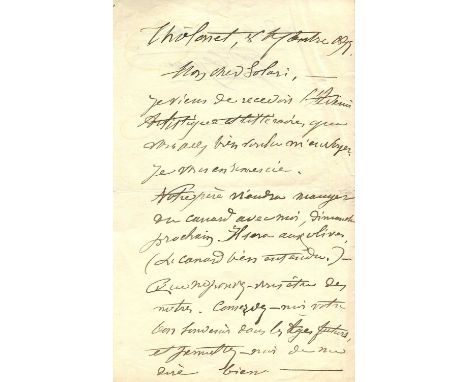 Tholonet, septembre 1897.
Mon cher Solari, —
je viens de recevoir la Revue
Artistique et littéraire, que
vous avez bien voulu m'envoyer.
Je vous en remercie.
Votre père viendra manger
du canard avec moi, dimanche
prochain. Il sera aux olives,
(Le canard bien entendu.) —
Que ne pouvez-vous être des
nôtres. Conservez-moi votre
bon souvenir dans les âges futurs,
et permettez-moi de me
dire bien